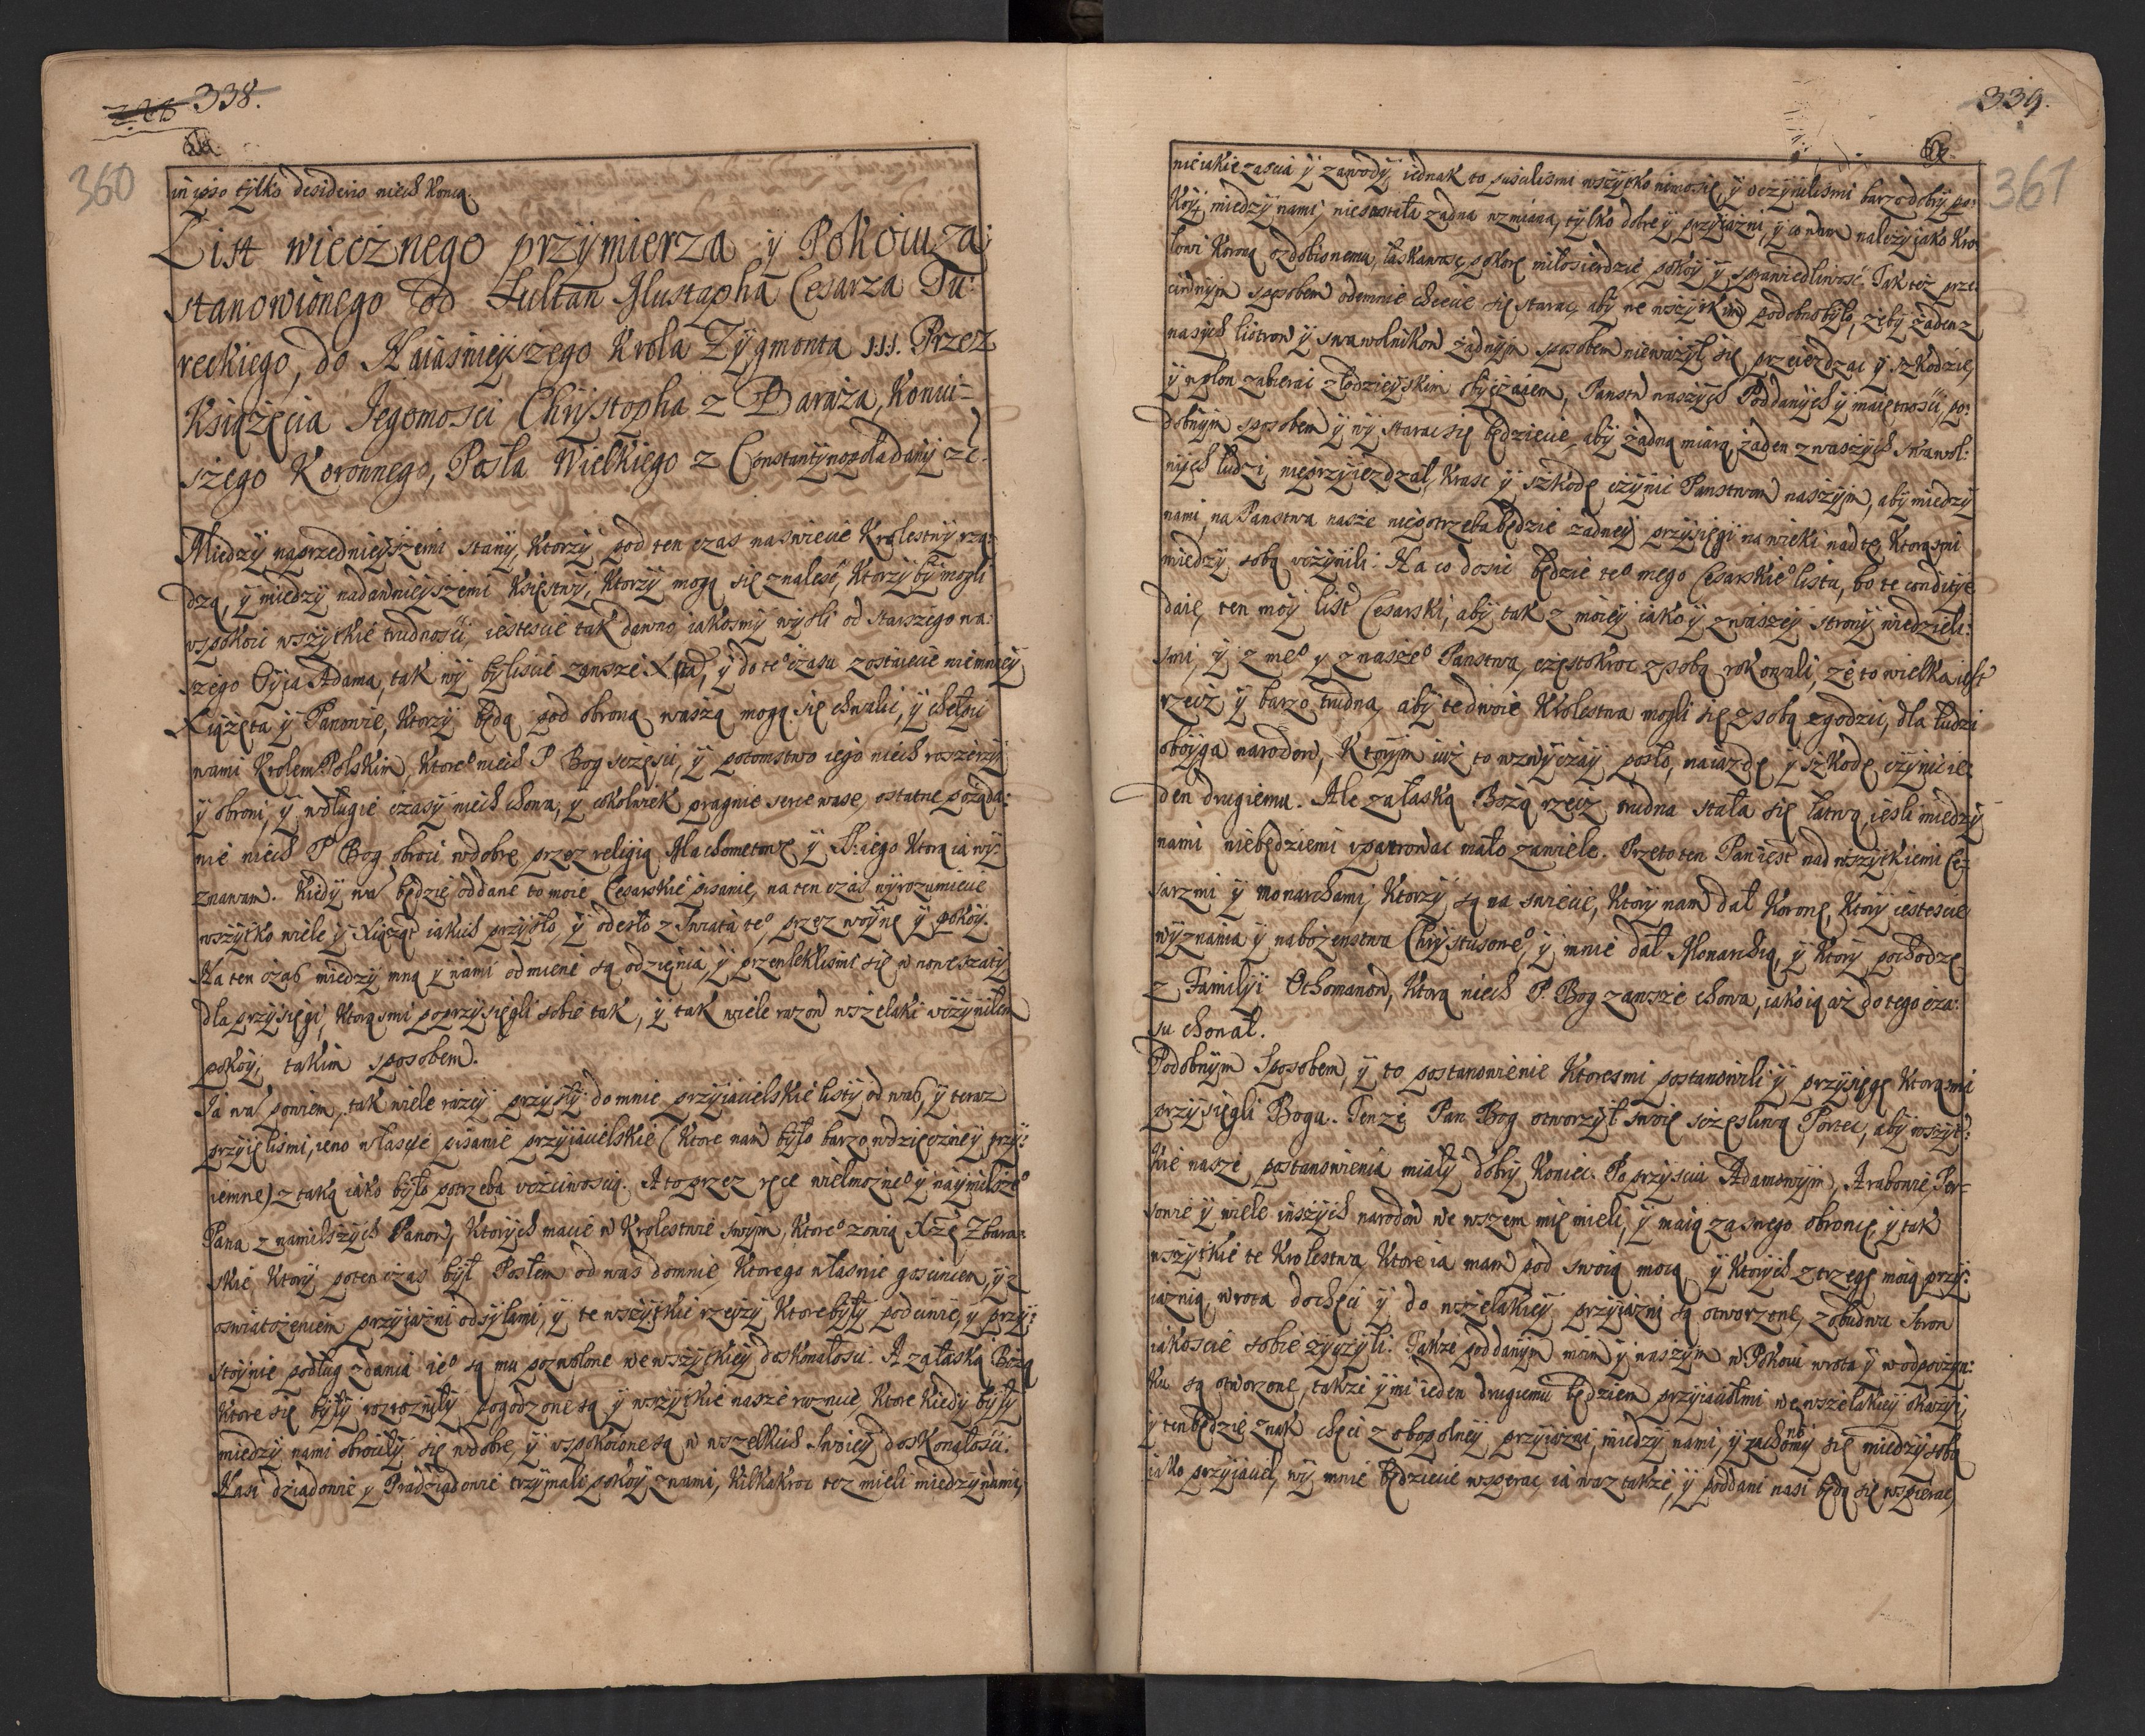 338.
360
in ipso tylko desiderio niech koncą.
List wiecżnego przÿmierza ÿ Pokoiu za:
stanowionego od Sultan Mustapha Cesarza Tu:
reckiego, do Naiasnieÿszego Krola Zÿgmonta III. Przez
Xiążęcia Jegomosci Chrÿstopha z Baraża, Koniu=
szego Koronnego, Posła Wielkiego z Constantÿnopola danÿ ze.
Międzÿ naprzednieÿszemi stanÿ, ktorzÿ pod ten czas na swiecie Krolestwÿ rzą:
dzą, ÿ miedzÿ nadawnieÿszemi Xięstwÿ, ktorzÿ mogą się znalesć, ktorzÿ bÿ mogli
uspokoic wszÿtkie trudnosci, iestescie tak dawno iakosmÿ wÿsli od starszego na:
szego Oÿca Adama, tak wÿ bÿliscie zawsze ÿ do te° czasu zostaiecie niemnieÿ
Xiążęta ÿ Panowie, ktorzÿ będą pod obroną waszą mogą się chwalic, ÿ chełpic
wami Krolem Polskim, ktore° niech P Bog szczęsci, ÿ potomstwo iego niech rozszerzÿ
ÿ obroni, ÿ wdługie czasÿ niech chowa, ÿ cokolwiek pragnie serce wase, ostatne pożąda:
nie niech P Bog obroci wdobre przez religią Machometowę ÿ ktorą ia wÿ:
znawam. Kiedÿ wa będzie oddane to moie Cesarskie pisanie, na ten czas wÿrozumiecie
wszÿtko wiele ÿ Xiążąt iakich przÿszło, ÿ odeszło z Swiata te° przez woÿnę ÿ pokoÿ.
Na ten czas miedzÿ mną ÿ wami odmiene są odzięnia, ÿ przewleklismi się w nowe szatÿ
dla przÿsięgi, ktorąsmi poprzÿsięgli sobie tak, ÿ tak wiele razow wszelaki uczÿnilem
pokoÿ, takim sposobem.
Ja wa powiem, tak wiele razeÿ przÿszłÿ do mnie przÿiacielskie listÿ od was, ÿ teraz
przÿielismi, ieno własne pisanie przÿiacielskie (ktore nam bÿło barzo wdzięczneÿ przÿ:
iemne) z taką iako bÿło potrzeba uczciwoscią. A to przez ręce wielmożne° ÿ naÿmilsze°
Pana z namilszÿch Panow, ktorÿch macie w Krolestwie swÿm, ktore° zowią Xżę Zbara:
skie ktorÿ poten czas bÿł Posłem od was domnie, ktorego własnie goscincem, ÿ z
oswiatczeniem przÿiazni odsÿłami, ÿ te wszÿtkie rzeczÿ ktore bÿłÿ podciwie, ÿ przÿ:
stoÿnie podług zdania ie° są mu pozwolone we wszÿtkieÿ doskonałosci. A załaską Bożą
ktore się bÿłÿ rozrożniłÿ pogodzone są ÿ wszÿtkie nasze roznice, ktore kiedÿ bÿłÿ
miedzÿ nami obrociłÿ się wdobre, ÿ uspokoione są w wszelkich swoieÿ doskonałosci.
Nasi dziadowie ÿ Pradziadowie trzÿmali pokoÿ znami, kilkakroc tez mieli miedzÿ nami,
339.
361
nieiakie zascia ÿ zawodÿ, iednak to pusalismi wszÿtko nimo się, ÿ uczÿnilismi barzo dobrÿ po:
koÿ, miedzÿ nami niezostała żadna wzmiana, tÿlko dobre ÿ przÿiazni, ÿ co nam należÿ jako Kro:
lowi Koroną ozdobionemu, łaskawosc, pokorę miłosierdzie pokoÿ ÿ sprawiedliwosć. Tak też prze:
ciwnÿm sposobem odemnie chcecie się starac, abÿ we wszÿtkim podobno bÿło, żebÿ żaden z
nasÿch listrow ÿ swawolnikow żadnÿm sposobem nieważył się, przeieżdzac ÿ szkodzic,
ÿ w plon zabierac złodzieÿskim obÿczaiem, Panstw naszÿch Poddanÿch ÿ maiętnosci, po:
dobnÿm sposobem ÿ wÿ starac się będziecie, abÿ żadną miarą, żaden z waszÿch swawol:
nÿch ludzi, nieprzÿiezdzał, krasc ÿ szkodę czÿnic Panstwom naszÿm, abÿ miedzÿ
nami, na Panstwa nasze niepotrzeba będzie zadneÿ przÿsięgi na wieki nad tę, ktorąsmi
miedzÿ sobą uczÿnili. Na co dosic będzie te° mego Cesarskie° lista, bo te conditÿe
daię, ten moÿ list Cesarski, abÿ tak z moieÿ iako ÿ z waszeÿ stronÿ wiedzieli:
smi, ÿ z me° ÿ z nasze° Panstwa, częstokroc z sobą rokowali, że to wielka iest
rzecz ÿ barzo trudna, abÿ te dwoie Krolestwa mogli się z sobą zgodzic, dla ludzi
oboÿga narodow, ktorÿm iuż to wzwÿczaÿ poszło, naiazdę ÿ szkodę czÿnic ie:
den drugiemu. Ale załaską Bożą rzecz trudna stała się łatwą, iesli miedzÿ
nami niebędziemi upatrowac mało zawiele. Przeto ten Pan iest nad wszÿtkiemi Ce:
sarzmi ÿ monarchami, ktorzÿ są na swiecie, ktorÿ nam dał Koronę, ktorÿ iestescie
wÿznania ÿ nabożenstwa Chrÿstusowe°, ÿ mnie dał Monarchią, ÿ ktorÿ pochodzę
z Familÿi Othomanow, ktorą niech P. Bog zawsze chowa, iako ią aż do tego cza:
su chował.
Podobnÿm sposobem, ÿ to postanowienie ktoresmi postanowili ÿ przÿsięgę ktorąsmi
przÿsięgli Bogu. Tenże Pan Bog otworzÿł swoię szczęsliwą Portec, abÿ wszÿt:
kie nasze postanowienia miałÿ dobrÿ koniec. Po przÿsciu Adamowÿm, Arabowie, Per=
sowie ÿ wiele inszÿch narodow we wszem mię mieli, ÿ maią za swego obroncę, ÿ tak
wszÿtkie te Krolestwa, ktore ia mam pod swoią mocą, ÿ ktorÿch z trzegę moią przÿ:
iaznią, wrota dochęci ÿ do wszelakieÿ przÿiazni są otworzone, z obudwu stron
iakoscie sobie zÿczÿli. Także poddanÿm moim ÿ waszÿm w Pokoiu wrota ÿ w odpoczÿn:
ku są otworzone, także ÿ mi ieden drugiemu będziem przÿiaciołmi we wszelakieÿ okazÿi,
ÿ ten będzie znak chęci z obopolneÿ przÿiazni, miedzÿ nami, ÿ zachowamÿ się miedzÿ sobą
iako przÿiaciel, wÿ mnie będziecie wspierac, ia waz także, ÿ poddani nasi będą się wspierac,